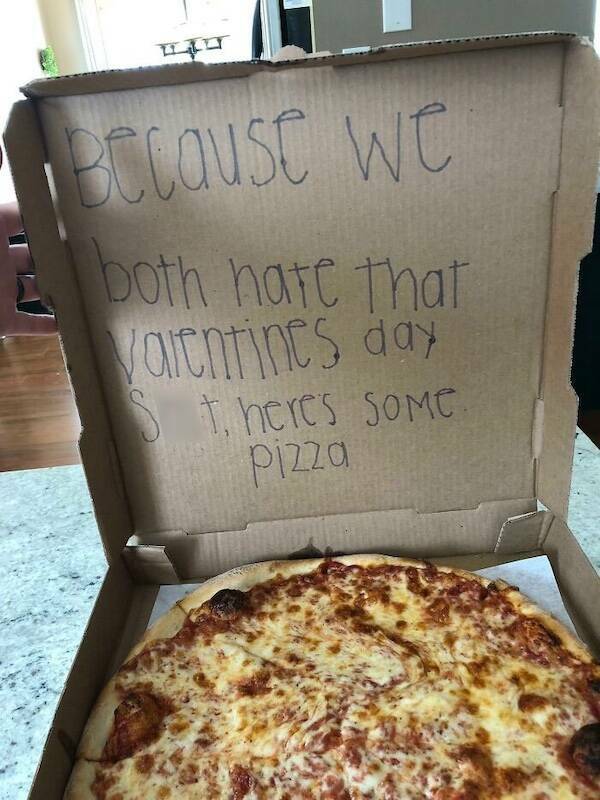 Because we
both hate that
valentines day
S t, here's some
pizza